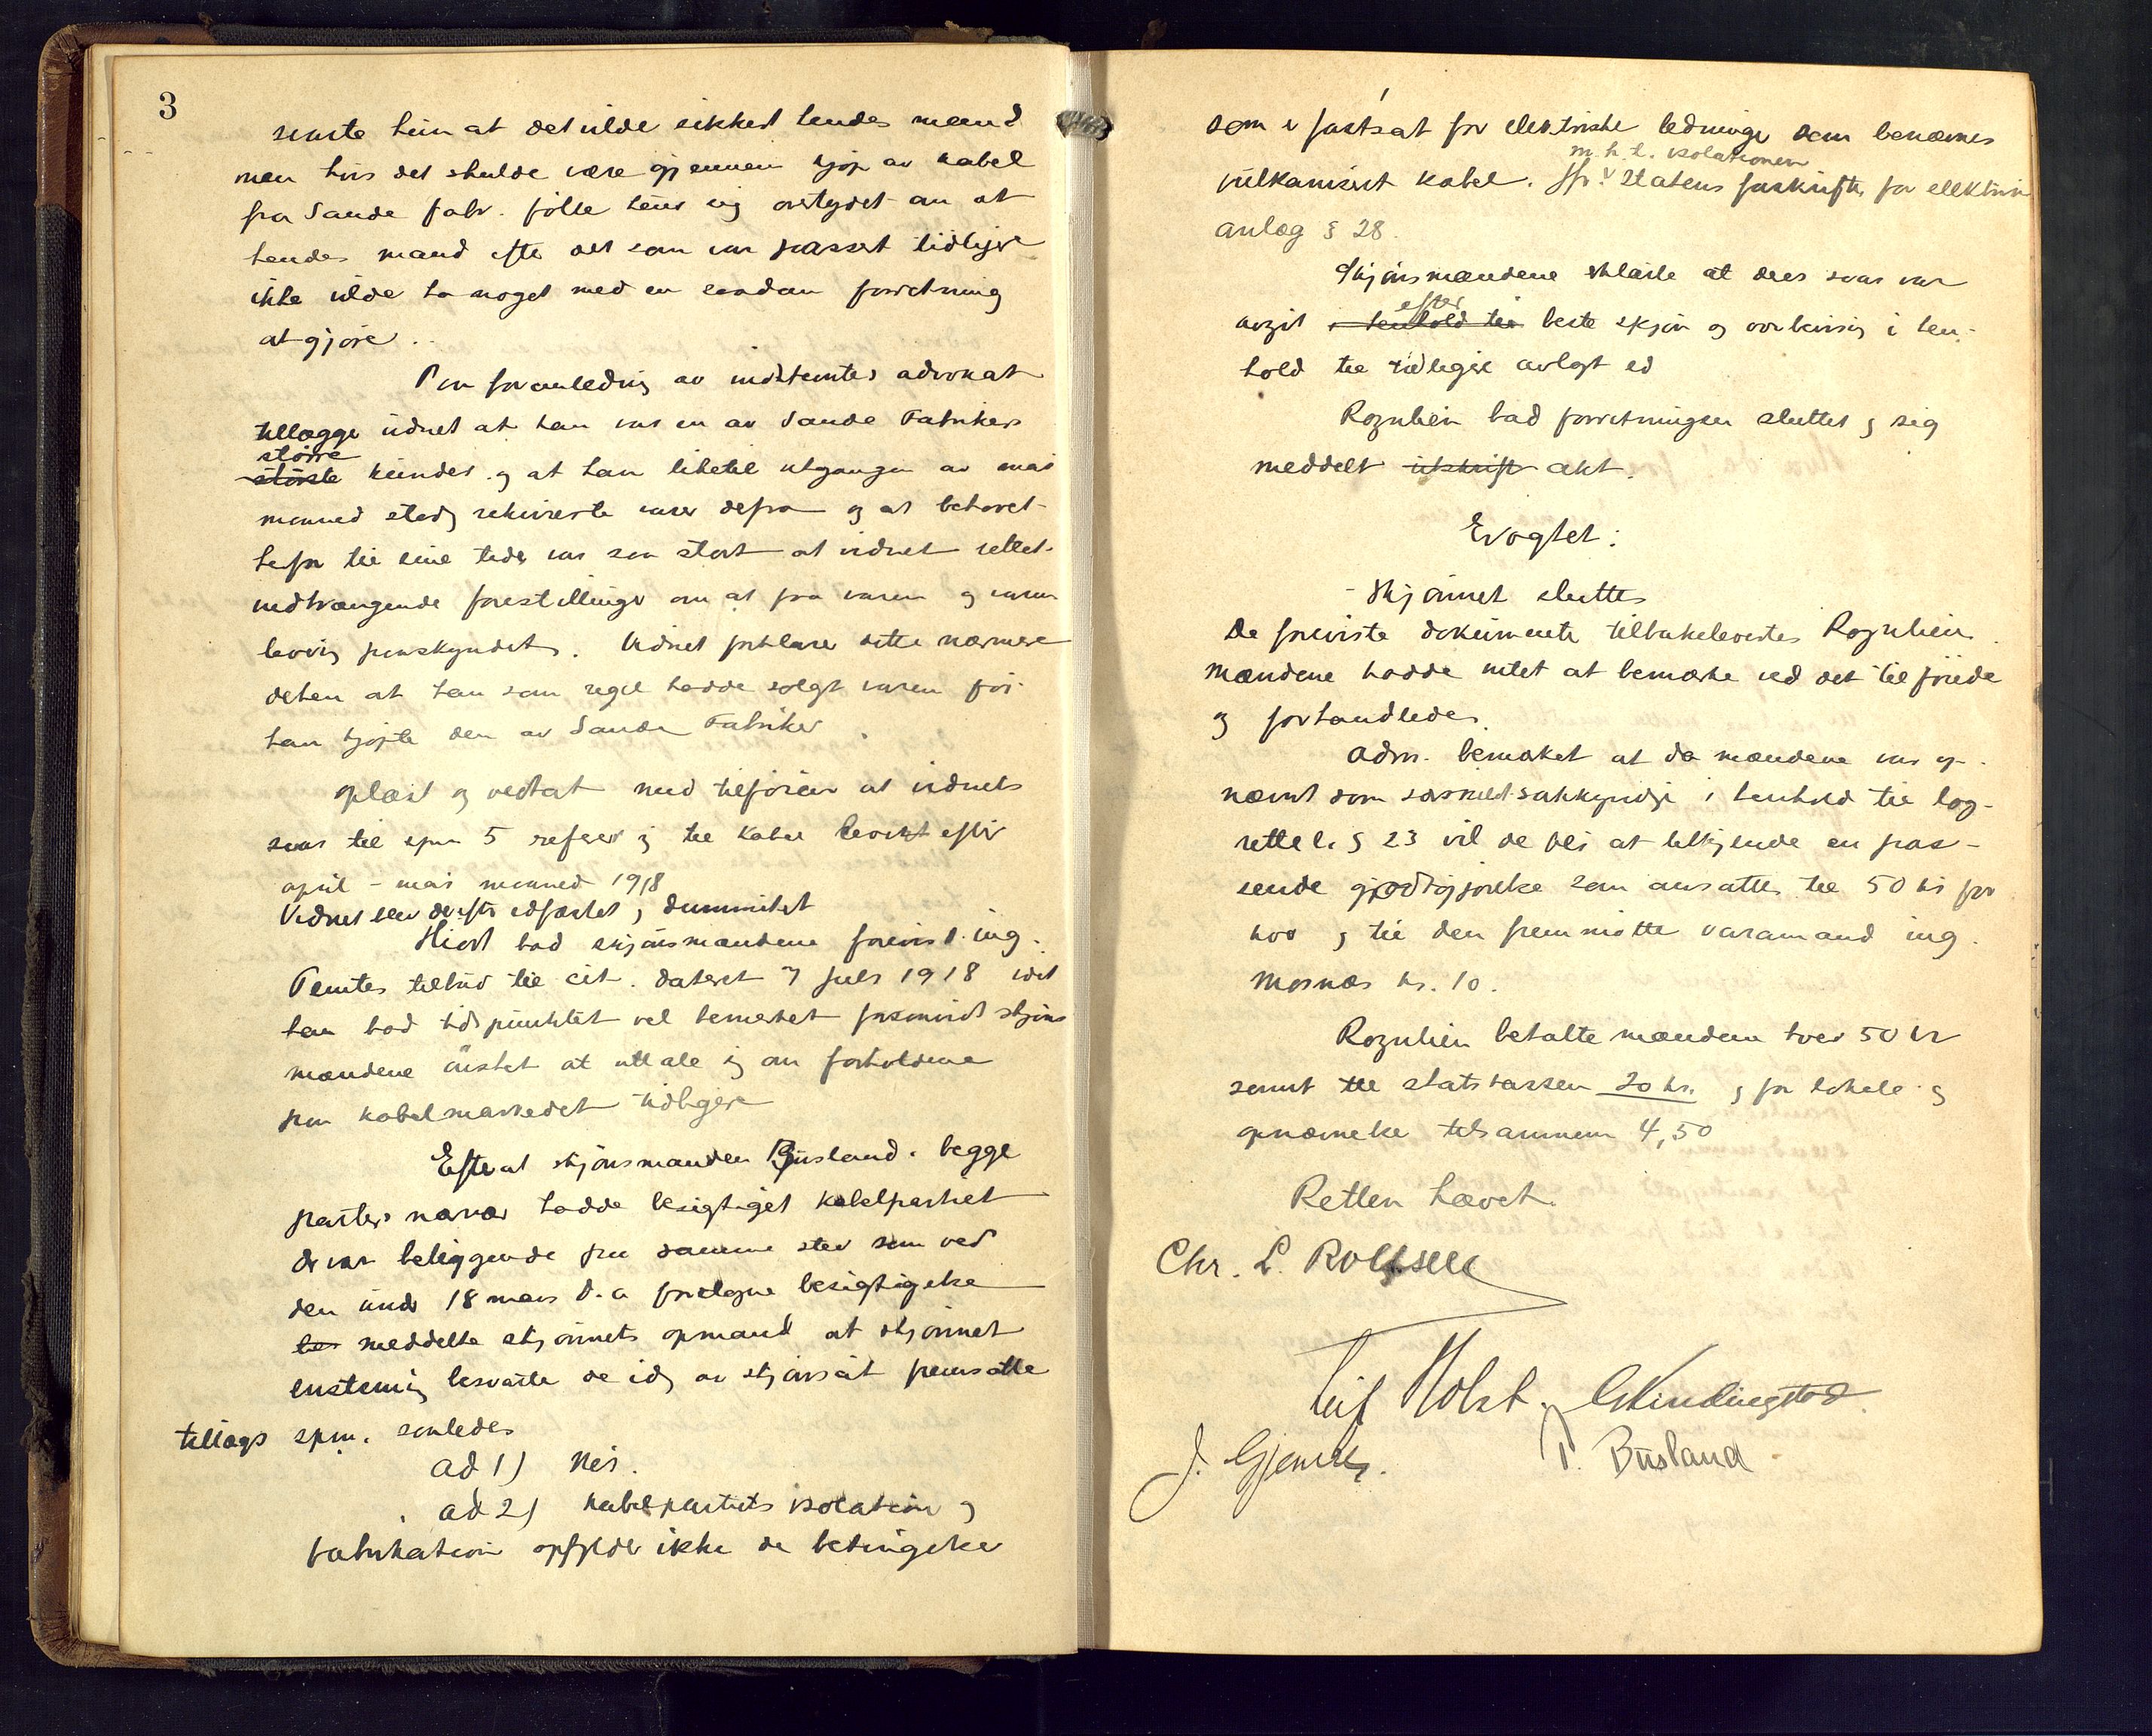 3
svarte hun at det vilde sikkert hendes mand
men hvis det skulde være gjennem kjøp av kabel
fra Sande Fabr. følte hun sig overtydet om at
hendes mand efter det som var passert tidligere
ikke vilde ha noget med en saadan forretning
at gjøre.
Paa foranledning av indstevntes advokat
tillægger vidnet at han var en av Sande Fabrikers
større
største kunder og at han likетil utgangen av mai
maaned stadig rekvirerte varer derfra og at behovet
herfor til sine tider var saa stort at vidnet rettet
indtrængende forestillinger om at faa varen og varens
levering paaskyndet. Vidnet forklarer dette nærmere
derhen at han som regel hadde solgt varen før
han kjøpte den av Sande Fabriker.
oplæst og vedtat med tilføiende at vidnets
svar til spm 5 refererer sig til kabel levert efter
april - mai maaned 1918
Vidnet blev derefter edfæstet og dimmitert
Hiort bad skjønsmændene forevist ing.
tilbud til cit. dateret 7 juli 1918 idet
han bad tidspunktet vel bemerket forsaavidt skjøns
mændene ønsket at uttale sig om forholdene
paa kabelmarkedet tidligere
Efterat skjønsmanden Büsland i begge
parters nærvær hadde besigtiget kabelpartiet
der var beliggende paa samme sted som ved
den under 18 mars d.a foretagne besigtigelse
ble meddelte skjønnets opmand at skjønnet
enstemig besvarte de idag av skjønscit fremsatte
tillægs spm. saaledes
ad 1) Nei.
ad 2) Kabelpartiets isolation og
fabrikation opfylder ikke de betingelser
som er fastsat for elektriske ledninger som benævnes
m.h.t. isolationen
vulkanisert kabel. Jfr. Statens forskrifter for elektriske
anlæg § 28.
Skjønsmændene erklærte at deres svar var
efter
avgit i henhold til beste skjøn og overbevisning i hen-
hold til tidligere avlagt ed
Rognlien bad forretningen sluttet og sig
meddelt utskrift akt.
Eragtet:
Skjønnet sluttes
De foreviste dokumenter tilbakeleverdes Rognlien.
Mændene hadde intet at bemerke ved det tilførte
og forhandlede.
Adm. bemerket at da mændene var op-
nævnt som særskilt sakkyndige i henhold til lag-
rette l. § 23 vil de bli at tilkjende en pas-
sende godtgjørelse som ansattes til 50 kr for
hver og til den fremmøtte varamand ing.
Mosnæs kr. 10.
Rognlien betalte mændene hver 50 kr
samt til statskassen 20 kr. og for lokale og
opnævnelse tilsammen 4,50
Retten hævet.
Chr. L. Rolfsen
Leif Holst. GKindingstad
J. Gjemre. T. Büsland